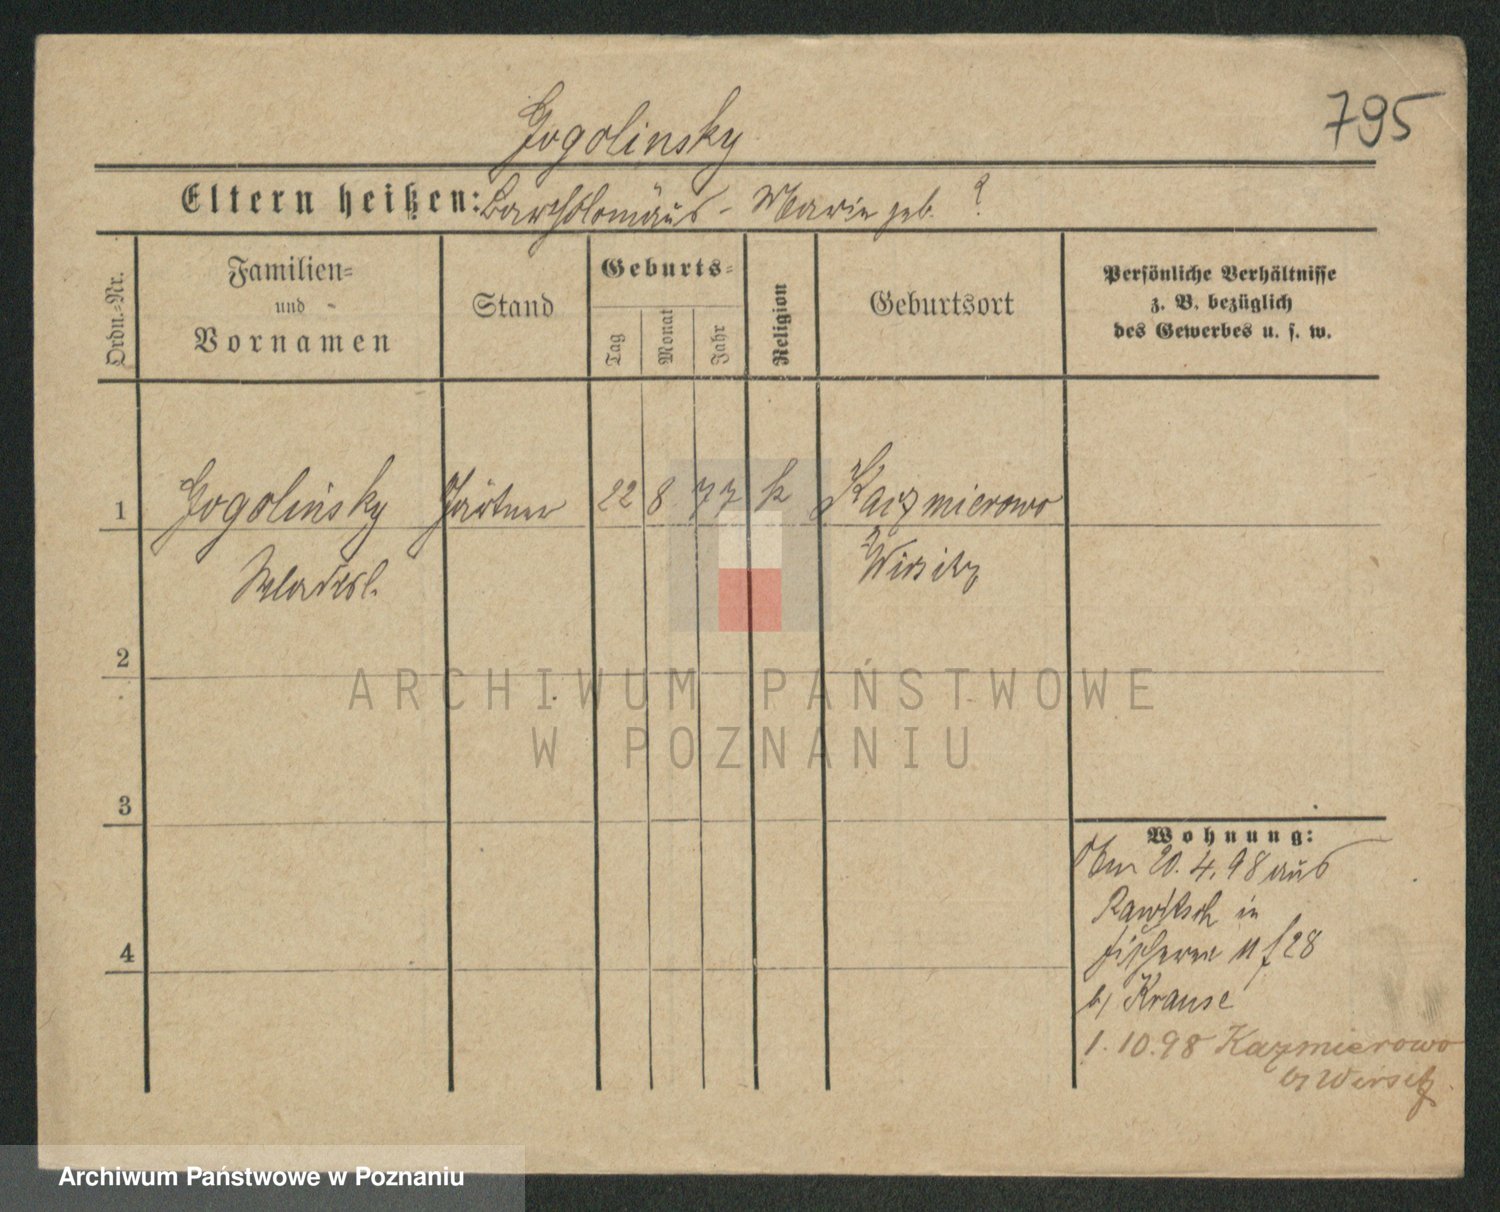 795
Gogolinsky
Eltern heißen: Bartholomäus - Marie geb. ?
Ordn.-Nr.
Familien-
und
Vornamen
Stand
Geburts-
Tag
Monat
Jahr
Religion
Geburtsort
Persönliche Verhältnisse
z. B. bezüglich
des Gewerbes u. s. w.
1 Gogolinsky Gärtner 22 8 77 k Kazmierowo
Wladisl. Wirsitz
2
3
4
Wohnung:
Am 20.4.98 aus
Rawitsch in
Fischerei 28
b/ Krause
1.10.98 Kazmierowo
b/ Wirsitz
ARCHIWUM PAŃSTWOWE
W POZNANIU
Archiwum Państwowe w Poznaniu